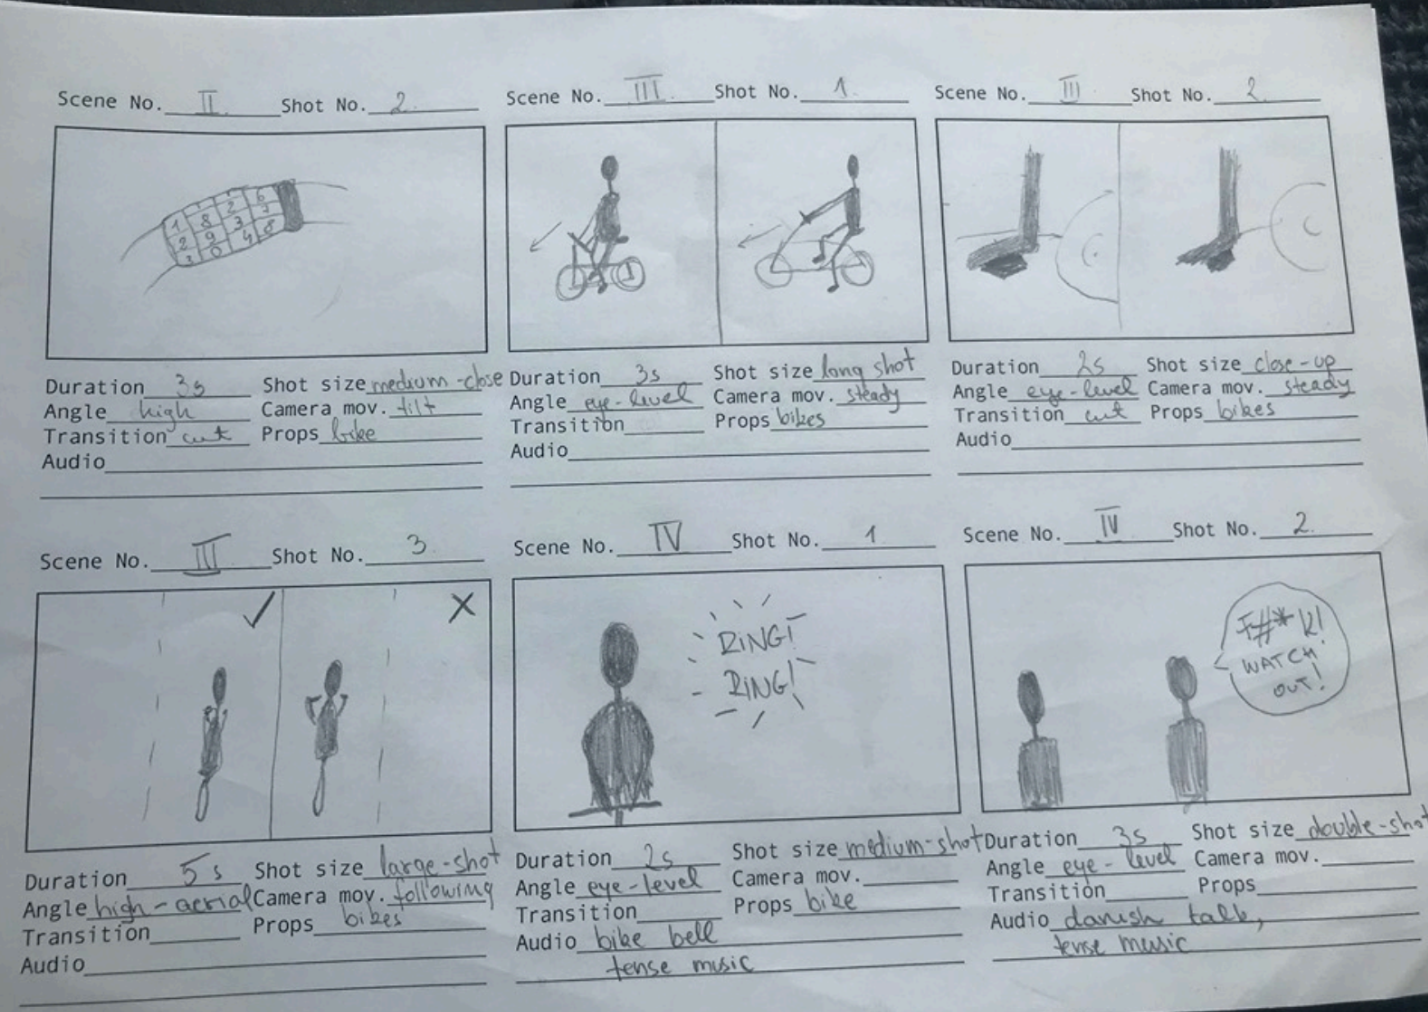 Scene No. II Shot No. 2
1 8 2 6
2 9 3 7
3 0 4 8
Duration 3s Shot size medium-close
Angle high Camera mov. tilt
Transition cut Props bike
Audio
Scene No. III Shot No. 1
Duration 3s Shot size long shot
Angle eye-level Camera mov. steady
Transition Props bikes
Audio
Scene No. III Shot No. 2
Duration 2s Shot size close-up
Angle eye-level Camera mov. steady
Transition cut Props bikes
Audio
Scene No. III Shot No. 3
Duration 5s Shot size large-shot
Angle high-aerial Camera mov. following
Transition Props bikes
Audio
Scene No. IV Shot No. 1
RING!
RING!
Duration 2s Shot size medium-shot
Angle eye-level Camera mov.
Transition Props bike
Audio bike bell
tense music
Scene No. IV Shot No. 2
F#*K!
WATCH
OUT!
Duration 3s Shot size double-shot
Angle eye-level Camera mov.
Transition Props
Audio danish talk,
tense music